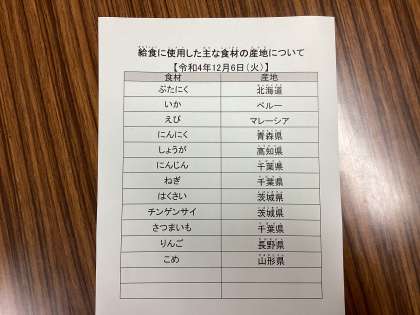 給食に使用した主な食材の産地について
【令和4年12月6日（火）】
食材 産地
ぶたにく 北海道
いか ペルー
えび マレーシア
にんにく 青森県
しょうが 高知県
にんじん 千葉県
ねぎ 千葉県
はくさい 茨城県
チンゲンサイ 茨城県
さつまいも 千葉県
りんご 長野県
こめ 山形県